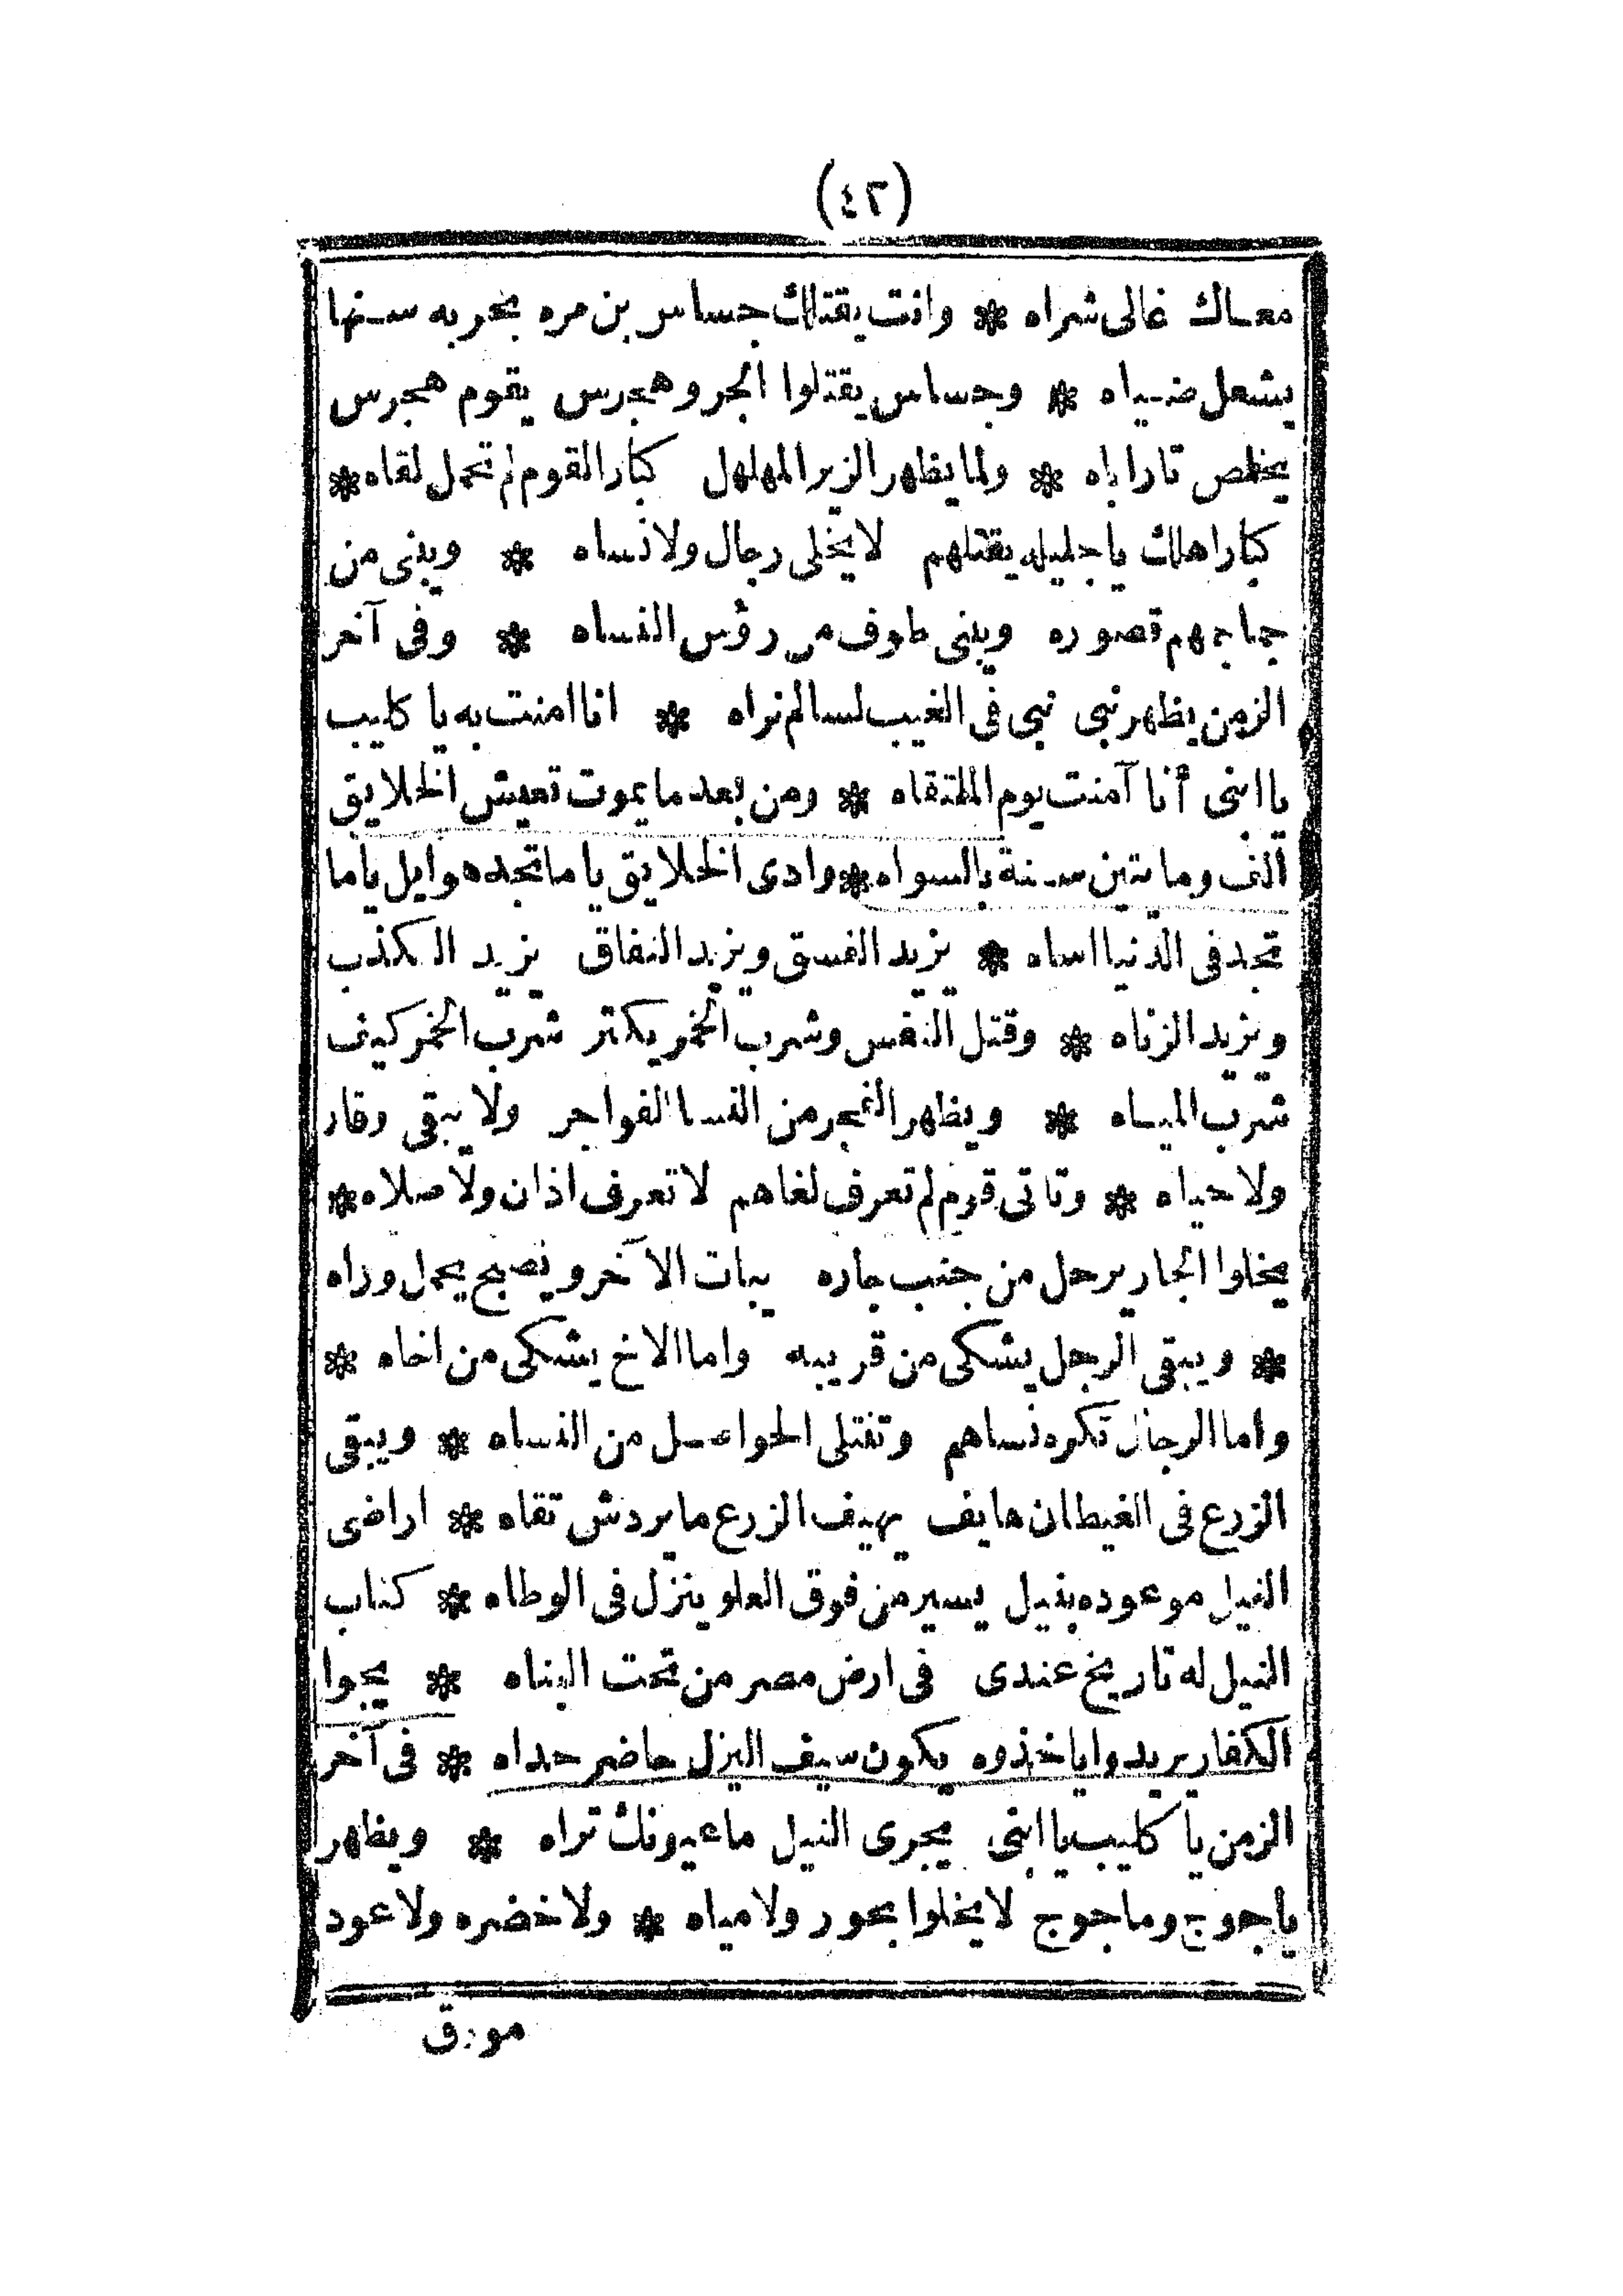 (٤٢)
معاك غالى شراه * وانت يقتلك جساس بن مره بحربه سنها
يشعل ضياه * وجساس يقتلوا الجرو هجرس يقوم هجرس
يخلص تار اباه * ولما يظهر الزير المهلهل كبار القوم لم تحمل لقاه *
كبار اهلك يا جليله يقتلهم لا يخلى رجال ولا نساه * ويبنى من
جماجمهم قصوره ويبنى طوف من رؤس النساه * وفى آخر
الزمن يظهر نبى نبى فى الغيب لسالم نراه * انا امنت به يا كليب
يا ابنى أنا آمنت يوم الملتقاه * ومن بعد ما يموت تعيش الخلايق
ألف ومايتين سنة بالسواه * وادى الخلايق ياما تجد هوايل ياما
تجد فى الدنيا اساه * يزيد الفسق ويزيد النفاق يزيد الكذب
ويزيد الزناه * وقتل النفس وشرب الخمر يكتر شرب الخمر كيف
شرب المياه * ويظهر الفجر من النسا الفواجر ولا يبقى وقار
ولا حياه * وتاتى قوم لم تعرف لغاهم لا تعرف اذان ولا صلاه *
يخلوا الجار يرحل من جنب جاره يبات الآخر ويصبح يحمل وراه
* ويبقى الرجل يشكى من قريبه واما الاخ يشكى من اخاه *
واما الرجال تكره نساهم وتنتلى الحواصل من النساه * ويبقى
الزرع فى الغيطان هايف يهيف الزرع ما يردش تقاه * اراضى
النيل موعوده بنيل يسير من فوق العلو ينزل فى الوطاه * كتاب
النيل له تاريخ عندى فى ارض مصر من تحت البناه * يجوا
الكفار يريدوا ياخذوه يكون سيف اليزل حاضر حداه * فى آخر
الزمن يا كليب يا ابنى يجرى النيل ما عيونك تراه * ويظهر
ياجوج وماجوج لا يخلوا بحور ولا مياه * ولا خضره ولا عود
مورق